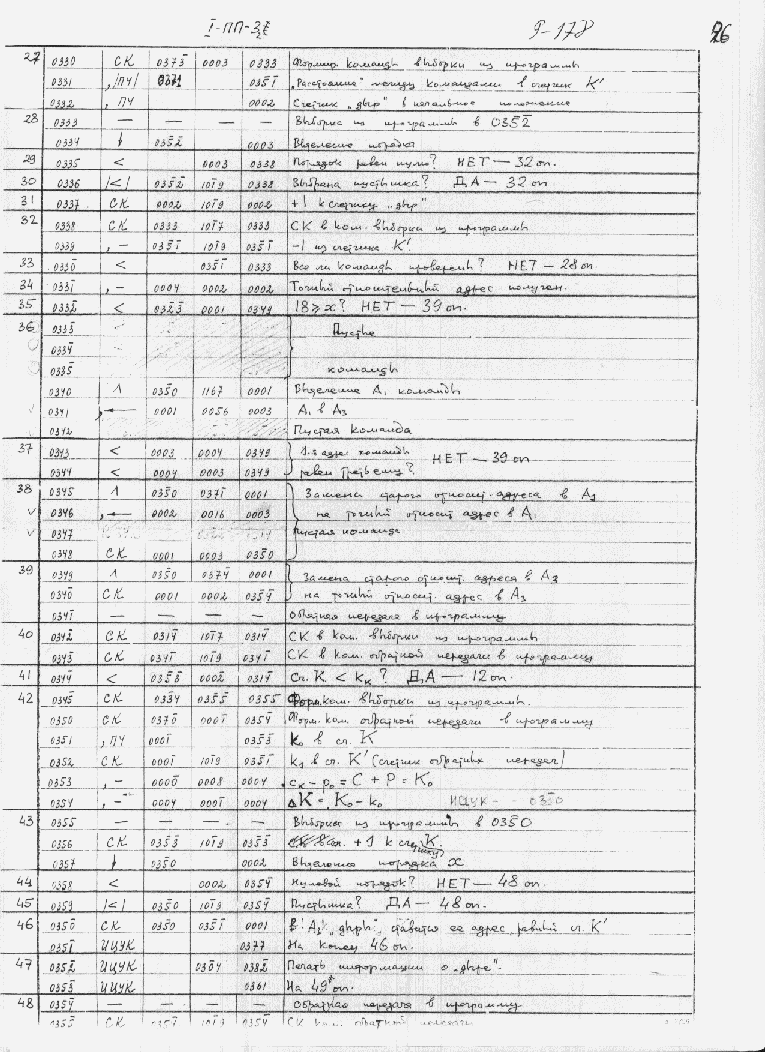 I-ПП-37 Р-178 96
27 0330 СК 0373̄ 0003 0333 Формир. команды выборки из программы
0331 ,/ПЧ/ 0351̄ „Расстояние" между командами в счетчик К'
0332 , ПЧ 0002 Счетчик „дыр" в начальное положение
28 0333 — — — — Выборка из программы в 0352̄
0334 ↓ 0352̄ 0003 Выделение порядка
29 0335 < 0003 0338 Порядок равен нулю? НЕТ — 32 оп.
30 0336 |<| 0352̄ 101̄9 0338 Выбрана пустышка? ДА — 32 оп
31 0337 СК 0002 101̄9 0002 +1 к счетчику „дыр"
32 0338 СК 0333 101̄7 0333 СК в ком. выборки из программы
0339 , – 0351̄ 101̄9 0351̄ –1 из счетчика К'
33 0330̄ < 0351̄ 0333 Все ли команды проверены? НЕТ — 28 оп.
34 0331̄ , – 0004 0002 0002 Точный относительный адрес получен.
35 0332̄ < 0323̄ 0001 0349 18 ≥ x? НЕТ — 39 оп.
36 0333̄ Пустые
0334̄
0335̄ команды
0340 Λ 0350̄ 1167 0001 Выделение А₁ команды
0341 , ← 0001 0056 0003 А₁ в А₃
0342 Пустая команда
37 0343 < 0003 0004 0349 1-й адр. команды НЕТ — 39 оп
0344 < 0004 0003 0349 равен третьему?
38 0345 Λ 0350̄ 0371̄ 0001 Замена старого относит. адреса в А₁
0346 , ← 0002 0016 0003 на точный относит адрес в А₁
0347 Пустая команда
0348 СК 0001 0003 0350̄
39 0349 Λ 0350̄ 0374̄ 0001 Замена старого относит. адреса в А₃
0340̄ СК 0001 0002 0354̄ на точный относит. адрес в А₃
0341̄ — — — — Обратная передача в программу
40 0342̄ СК 0314̄ 101̄7 0314̄ СК в ком. выборки из программы
0343̄ СК 0341̄ 101̄9 0341̄ СК в ком. обратной передачи в программу
41 0344̄ < 0353̄ 0002̄ 0314̄ Сч. К < kк? ДА — 12 оп.
42 0345̄ СК 0334̄ 0355̄ 0355 Форм. ком. выборки из программы.
0350 СК 0370̄ 0001̄ 0354̄ Форм. ком. обратной передачи в программу
0351 , ПЧ 0001̄ 0353̄ k₀ в сч. К
0352 СК 0001̄ 101̄9 0351̄ k₁ в сч. К' (Счетчик обратных передач)
0353 , – 0000̄ 0008 0004 cк – p₀ = C + P = K₀
0354 , – 0004 0001̄ 0004 ΔK = K₀ – k₀ ИЦУК — 0350
43 0355 — — — — Выборка из программы в 0350̄
0356 СК 0353̄ 101̄9 0353̄ +1 к счетчику К.
0357 ↓ 0350̄ 0002 Выделение порядка x
44 0358 < 0002 0354̄ Нулевой порядок? НЕТ — 48 оп.
45 0359 |<| 0350̄ 101̄9 0354̄ Пустышка? ДА — 48 оп.
46 0350̄ СК 0350 0351̄ 0001 в А₁ „дыры" ставится ее адрес, равный сч. К'
0351̄ ИЦУК 0377 На конец 46 оп.
47 0352̄ ИЦУК 0304̄ 0382 Печать информации о „дыре".
0353̄ ИЦУК 0361 На 49 оп.
48 0354̄ — — — — Обратная передача в программу
0355̄ СК 0354̄ 101̄7 0354̄ СК ком. обратной передачи